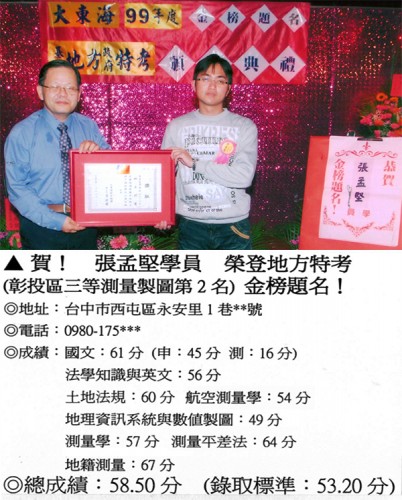 大東海 99年度 金榜題名
地方政府特考 頒獎典禮
恭賀
張孟堅
同學
金榜題名!
▲賀! 張孟堅學員 榮登地方特考
(彰投區三等測量製圖第2名) 金榜題名!
◎地址:台中市西屯區永安里1巷**號
◎電話:0980-175***
◎成績:國文:61分 (申:45分 測:16分)
法學知識與英文:56分
土地法規:60分 航空測量學:54分
地理資訊系統與數值製圖:49分
測量學:57分 測量平差法:64分
地籍測量:67分
◎總成績:58.50分 (錄取標準:53.20分)